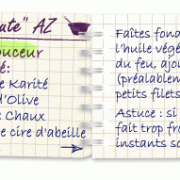 ute" AZ
ouceur
é:
e Karité
d'Olive
: Chaux
e cire d'abeille
Faites fond
l'huile végé
du feu, ajou
(préalablem
petits filets
Astuce : si
fait trop fro
instants so